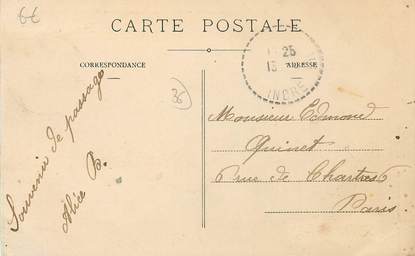 6€
CARTE POSTALE
CORRESPONDANCE
ADRESSE
25
13
INDRE
36
Souvenir de passage
Alice B.
Monsieur Edmond
Quinet
6 rue de Chartres 6
Paris